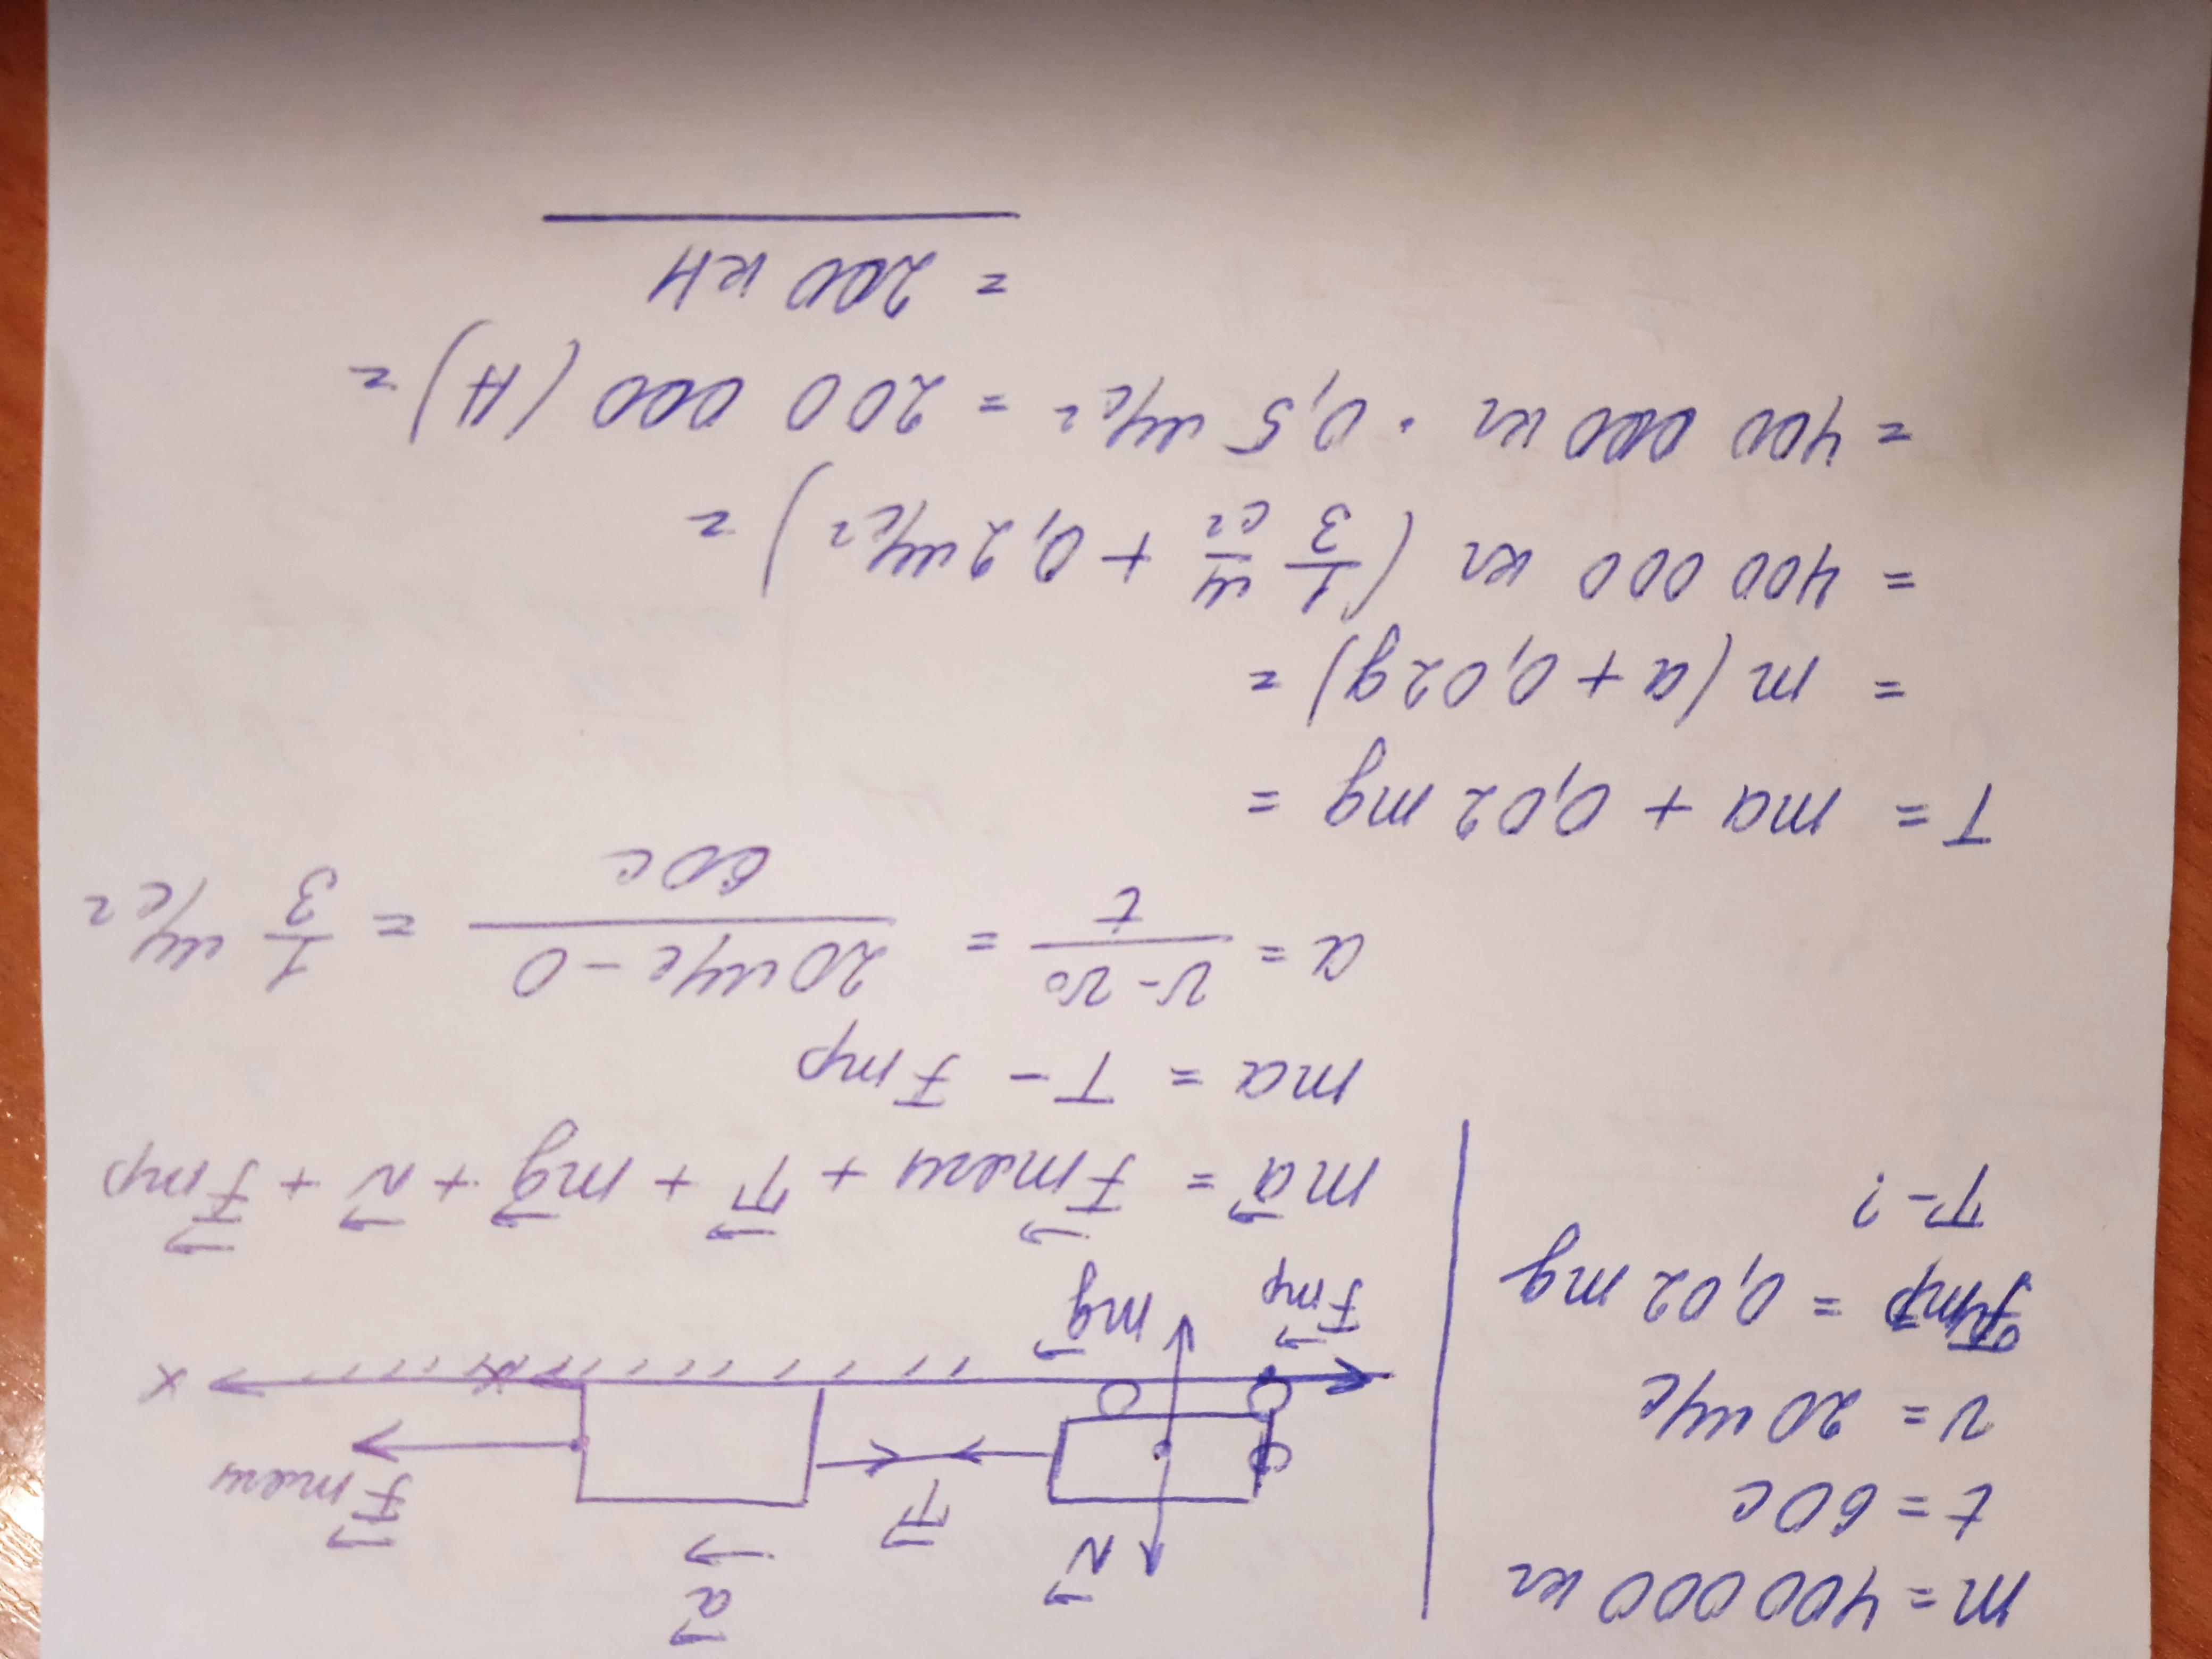 m = 400 000 кг
t = 60 с
v = 20 м/с
Fтр = 0,02 mg
T - ?
N⃗
a⃗
T⃗
F⃗тяги
x
mg⃗
F⃗тр
ma⃗ = F⃗тяги + T⃗ + mg⃗ + N⃗ + F⃗тр
ma = T - Fтр
a = (v - v₀)/t = (20 м/с - 0)/(60 с) = 1/3 м/с²
T = ma + 0,02 mg =
= m (a + 0,02g) =
= 400 000 кг (1/3 м/с² + 0,2 м/с²) =
= 400 000 кг · 0,5 м/с² = 200 000 (Н) =
= 200 кН